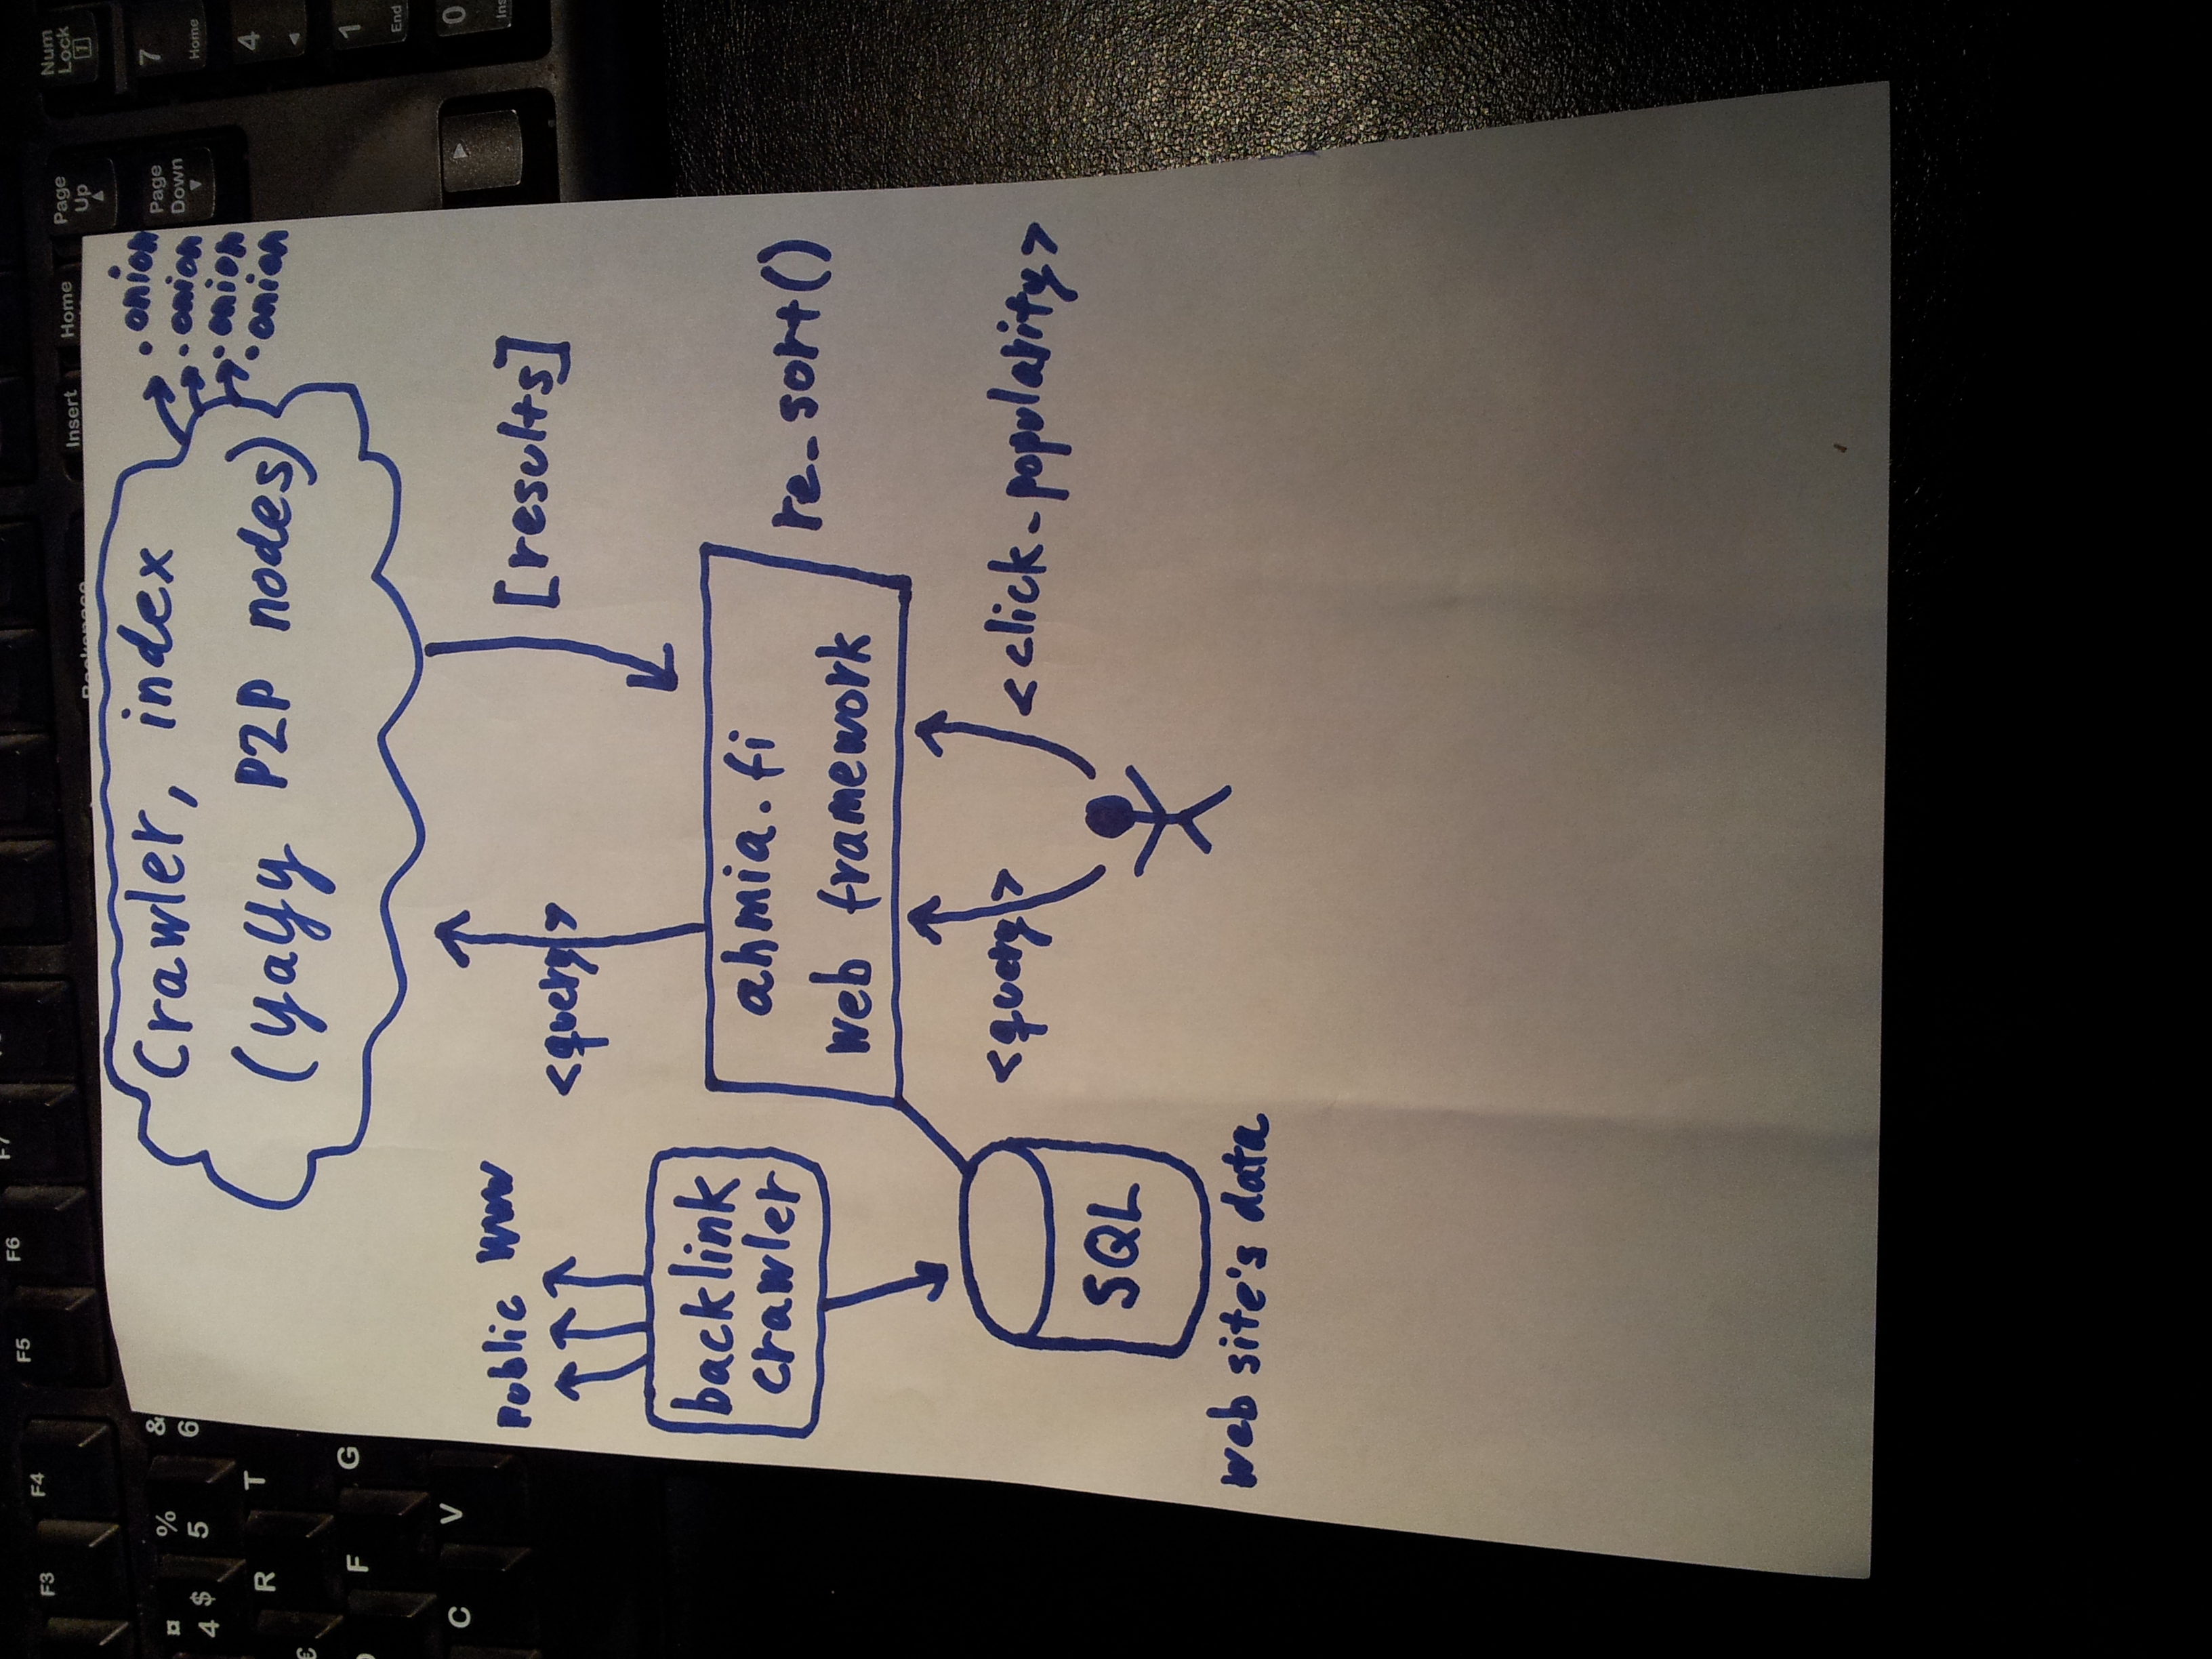 F3
F4
F5
F6
F7
Backspace
Insert
Home
Page
Up
Num
Lock
1
¤
4 $
%
5
&
6
Page
Down
7
Home
R
T
4
F
G
1
End
C
V
0
Ins
Crawler, index
(yaYy P2P nodes)
.onion
.onion
.onion
.onion
Public WWW
<query>
[results]
backlink
crawler
ahmia.fi
web framework
re_sort()
<query>
<click_popularity>
SQL
web site's data